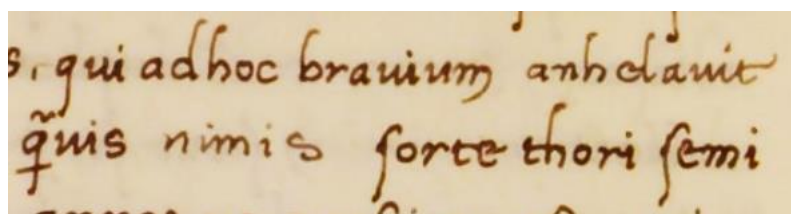 s, qui adhoc bravium anhelavit
q̃uis nimis ſorte thori ſemi